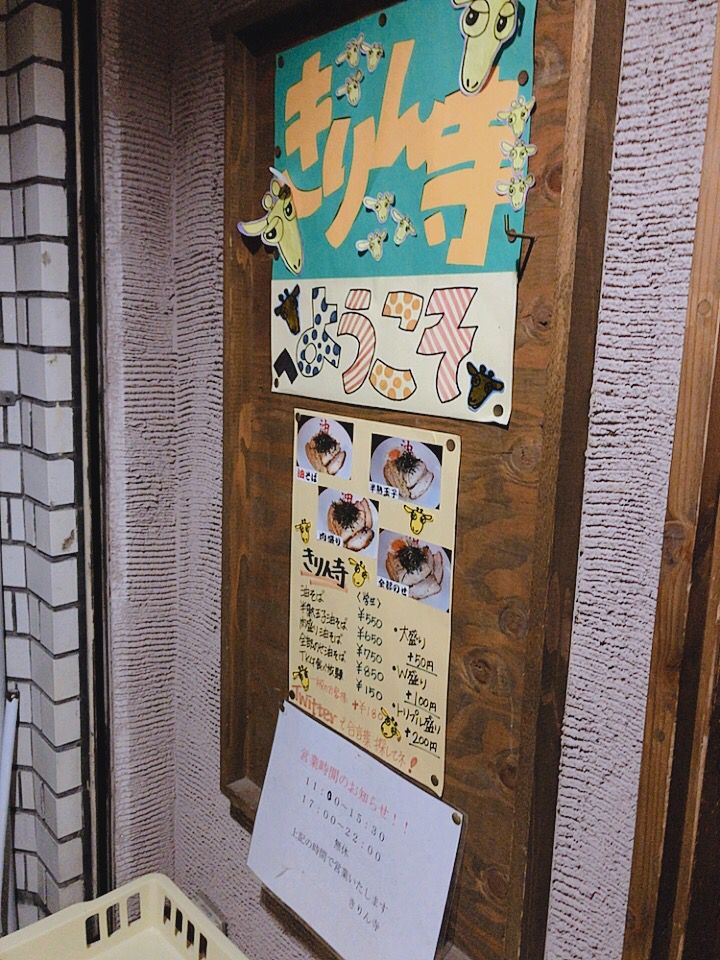 きりん寺
ようこそ
へ
油そば
半熟玉子
肉盛り
全部のせ
きりん寺
〈学生〉
油そば ¥550
半熟玉子油そば ¥650
肉盛り油そば ¥750
全部のせ油そば ¥850
TKG食べ放題 ¥150
一般のお客様 +¥180
・大盛り
+50円
・W盛り
+100円
・トリプル盛り
+200円
Twitter
探してネ!
営業時間のお知らせ!!
11:00~15:30
17:00~22:00
無休
上記の時間で営業いたします
きりん寺